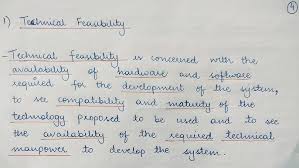 4
1) Technical Feasibility
- Technical feasibility is concerned with the
availability of hardware and software
required for the development of the system,
to see compatibility and maturity of the
technology proposed to be used and to see
the availability of the required technical
manpower to develop the system.